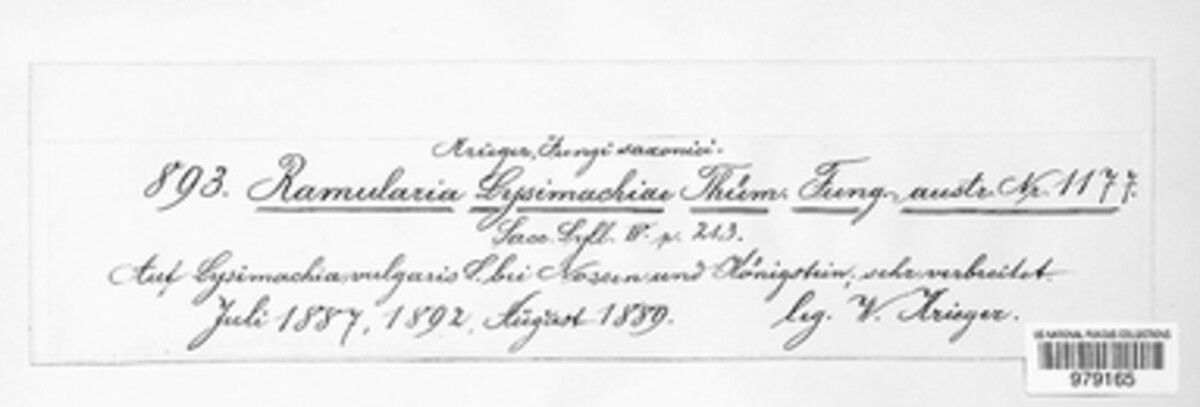 Krieger, Fungi saxonici.
893. Ramularia Lysimachiae Thüm. Fung. austr. Nr. 1177.
Sacc. Syll. IV. p. 213.
Auf Lysimachia vulgaris L. bei Nossen und Königstein, sehr verbreitet
Juli 1887, 1892, August 1889. leg. W. Krieger.
US NATIONAL FUNGUS COLLECTIONS
979165